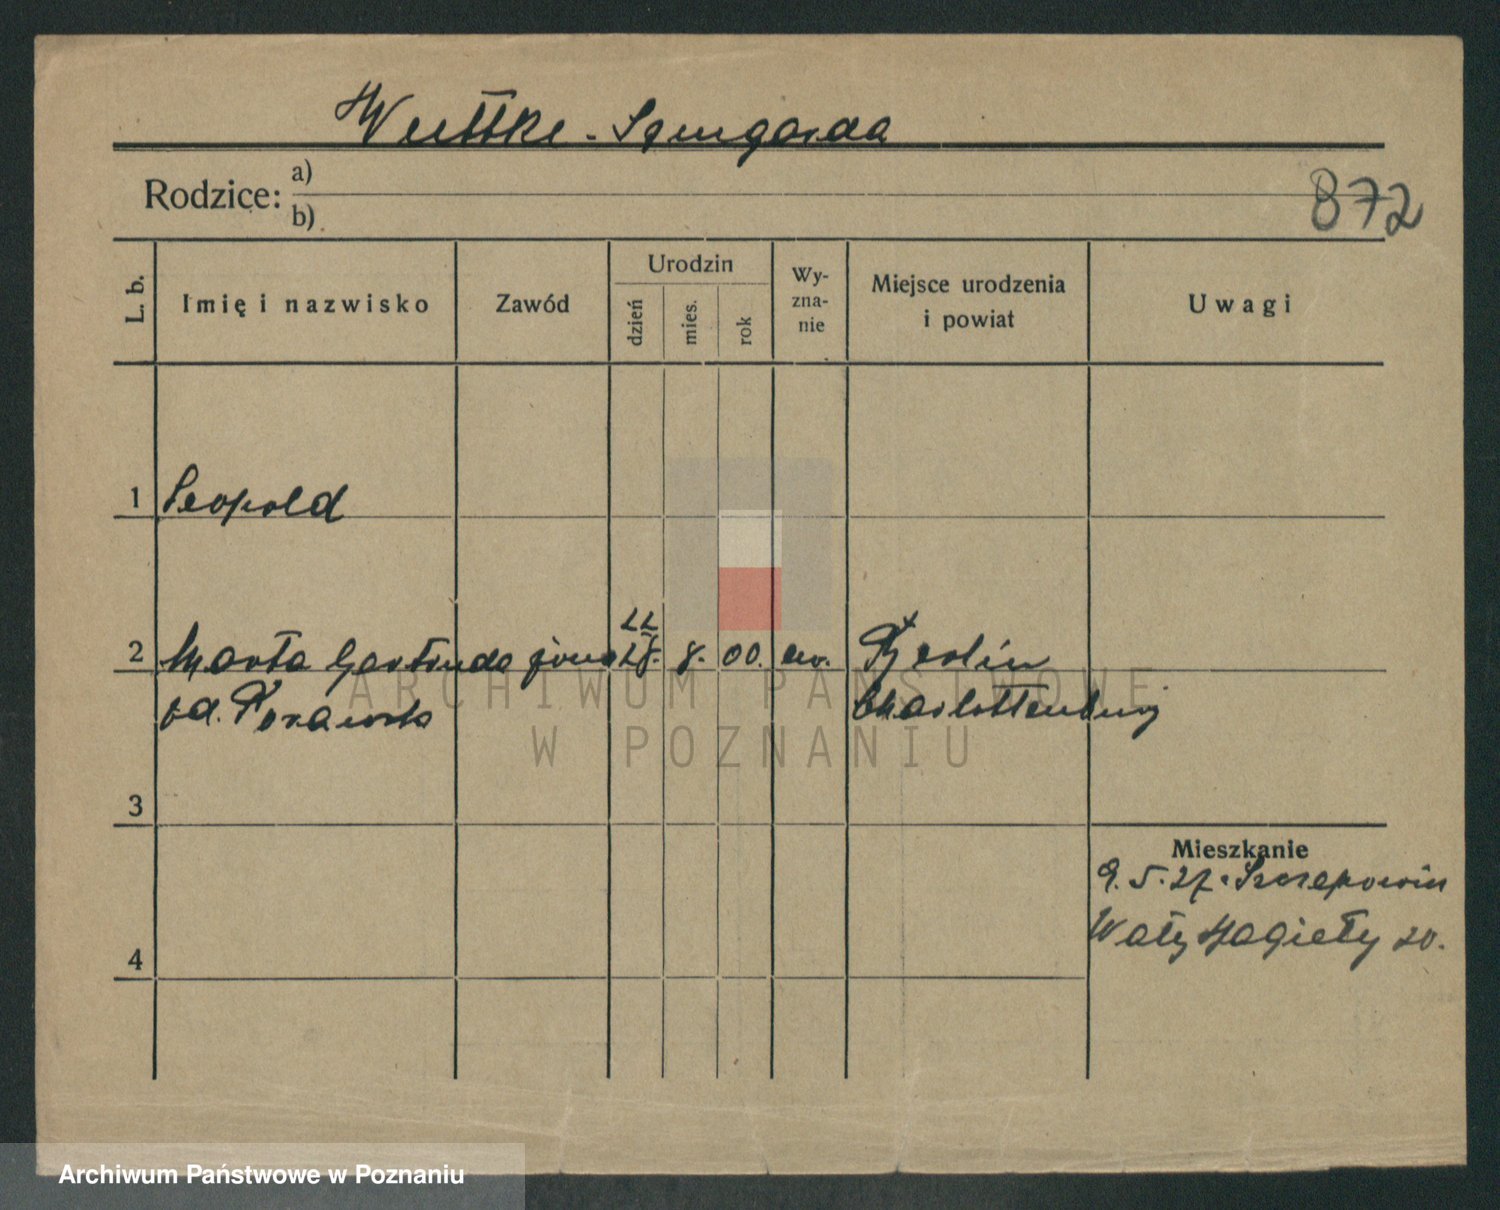 Wuttke - Irmgarda
Rodzice: a)
b)
872
L. b.
Imię i nazwisko
Zawód
Urodzin
dzień
mies.
rok
Wy-
zna-
nie
Miejsce urodzenia
i powiat
Uwagi
1 Leopold
22
2 Marta Gertruda żona 28. 8. 00. ew. Berlin
Charlottenburg
3
Mieszkanie
9. 5. 27.
Wały Jagiełły 20.
4
ARCHIWUM PAŃSTWOWE
W POZNANIU
Archiwum Państwowe w Poznaniu